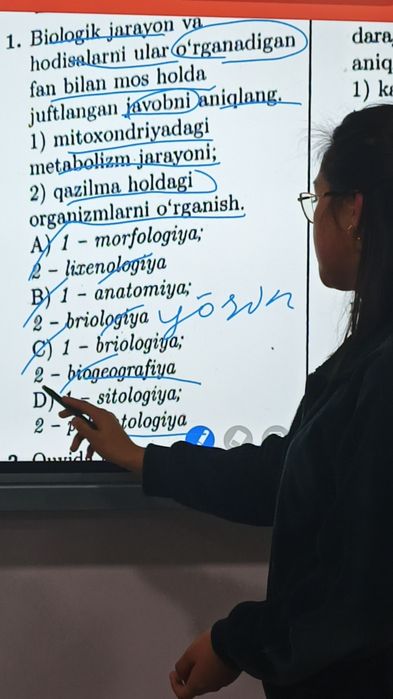 1. Biologik jarayon va
hodisalarni ular o‘rganadigan
fan bilan mos holda
juftlangan javobni aniqlang.
1) mitoxondriyadagi
metabolizm jarayoni;
2) qazilma holdagi
organizmlarni o‘rganish.
A) 1 – morfologiya;
2 – lixenologiya
B) 1 – anatomiya;
2 – briologiya
C) 1 – briologiya;
2 – biogeografiya
D) – sitologiya;
2 – tologiya
dara
aniq
1)